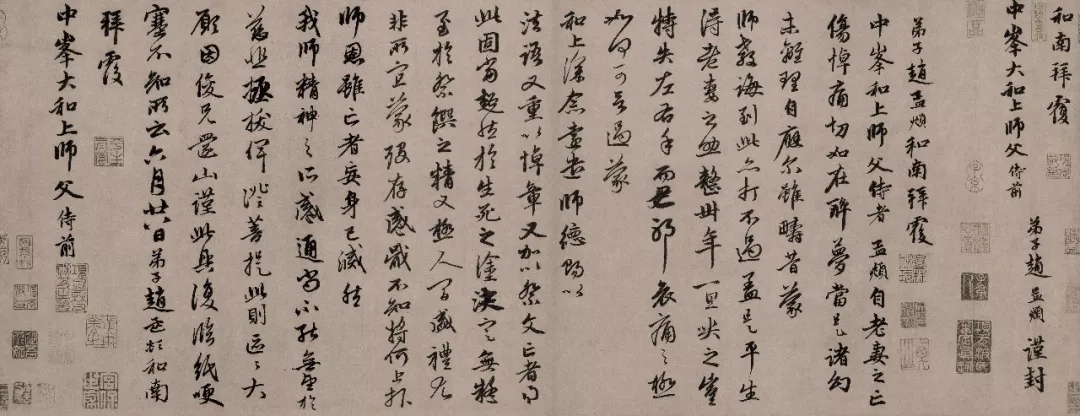 和南拜覆
中峯大和上師父侍前
弟子趙孟頫謹封
弟子趙孟頫和南拜覆
中峯和上師父侍者孟頫自老妻之亡
傷悼痛切如在醉夢當是諸幻
未離理自應尔雖疇昔蒙
師教誨到此亦打不過蓋是平生
得老妻之助整卅年一旦失之豈
特失左右手而已耶哀痛之極
如何可言過蒙
和上深念遠遣師德賜以
法語又重以悼章又加以祭文亡者得
此固當超然於生死之塗決定無疑
至於祭饌之精又極人間盛禮尤
非所宜蒙殁存感戴不知將何上報
師恩雖亡者妄身已滅然
我師精神之所感通尚不能無望於
慈悲拯拔俾證菩提此則區區大
願因俊兄還山謹此具復臨紙哽
塞不知所云六月廿八日弟子趙孟頫和南
拜覆
中峯大和上師父侍前